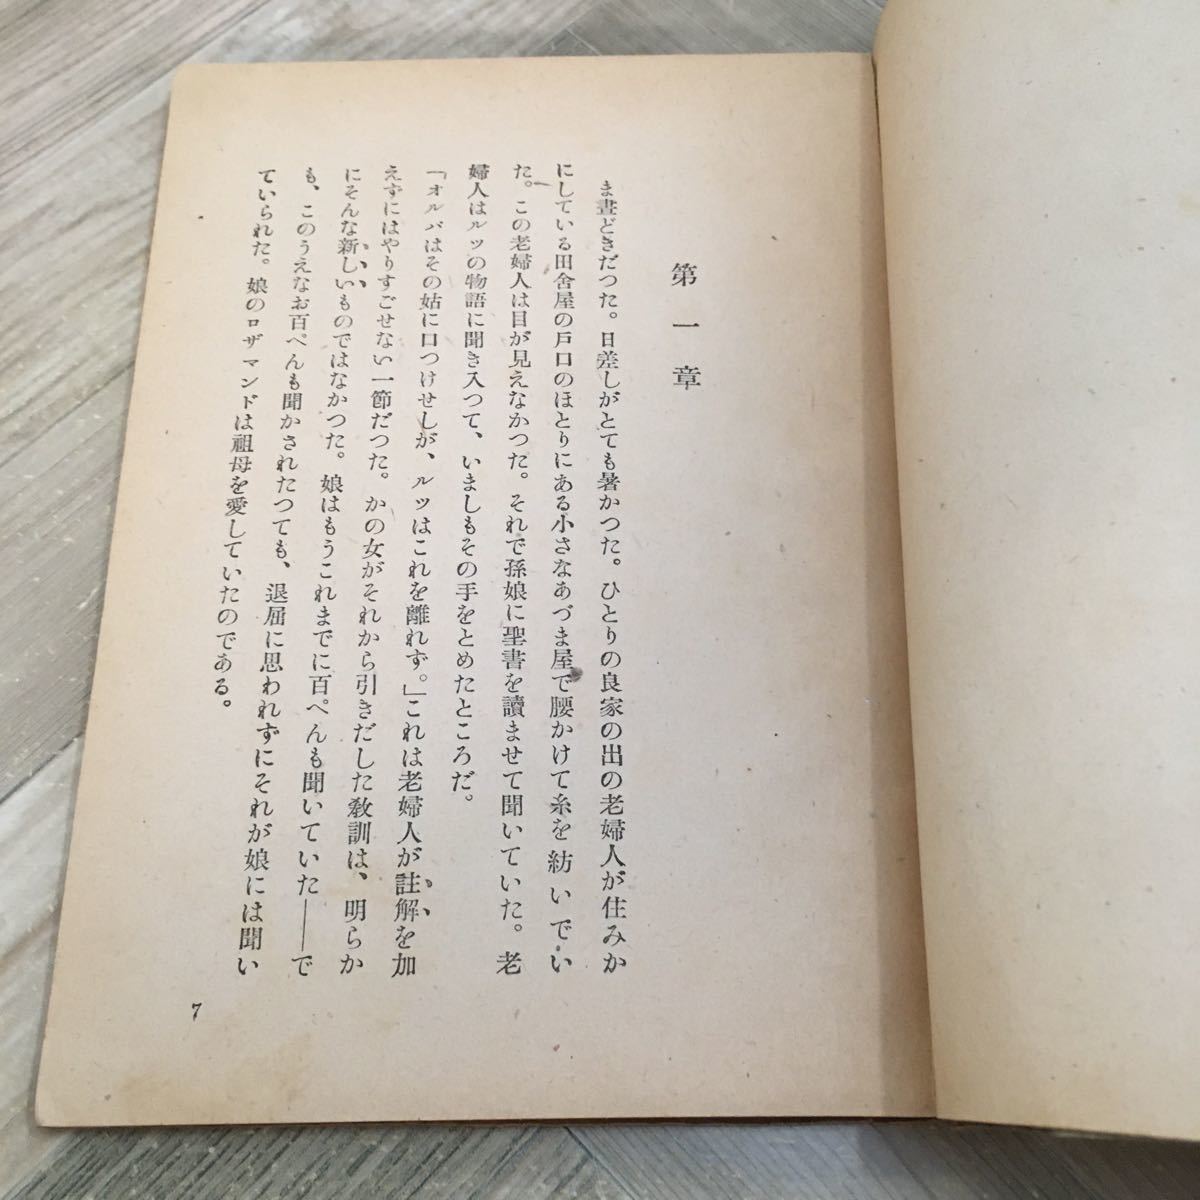 第一章
ま晝どきだつた。日差しがとても暑かつた。ひとりの良家の出の老婦人が住みか
にしている田舍屋の戸口のほとりにある小さなあづま屋で腰かけて糸を紡いでい
た。この老婦人は目が見えなかつた。それで孫娘に聖書を讀ませて聞いていた。老
婦人はルツの物語に聞き入つて、いましもその手をとめたところだ。
「オルバはその姑に口つけせしが、ルツはこれを離れず。」これは老婦人が註解を加
えずにはやりすごせない一節だつた。かの女がそれから引きだした敎訓は、明らか
にそんな新しいものではなかつた。娘はもうこれまでに百ぺんも聞いていた――で
も、このうえなお百ぺんも聞かされたつても、退屈に思われずにそれが娘には聞い
ていられた。娘のロザマンドは祖母を愛していたのである。
7